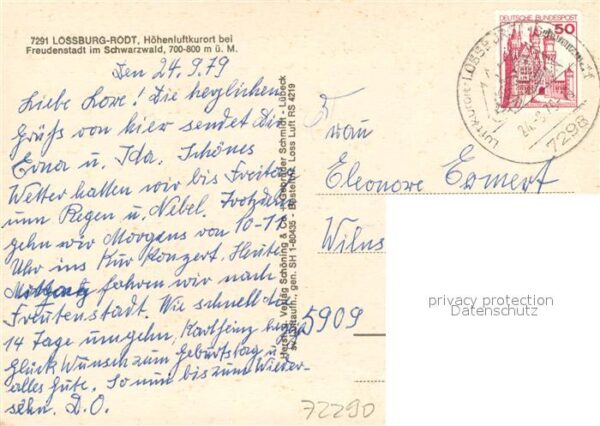 7291 LOSSBURG-RODT, Höhenluftkurort bei
Freudenstadt im Schwarzwald, 700-800 m ü. M.
Den 24.9.79
Liebe Lore! Die herzlichen
Grüße von hier sendet Dir
Erna u. Ida. Schönes
Wetter hatten wir bis Freitag
nun Regen u. Nebel. Trotzdem
gehn wir Morgens von 10-11
Uhr ins Kur Konzert. Heute
Mittag fahren wir nach
Freutenstadt. Wie schnell die
14 Tage umgehn, Karlheinz
Glück Wunsch zum Geburtstag u.
alles Gute. So nun bis zum Wieder-
sehn. D.O.
Verlag Schöning & Co. + Gebrüder Schmidt - Lübeck
gen. SH 1-80435 - Bestell-Nr. Loss Luft RS 4219
Frau
Eleonore Esmert
Wilns
5909
72290
DEUTSCHE BUNDESPOST
50
Luftkurort LOSSBURG
24.-9.79
7298
privacy protection
Datenschutz